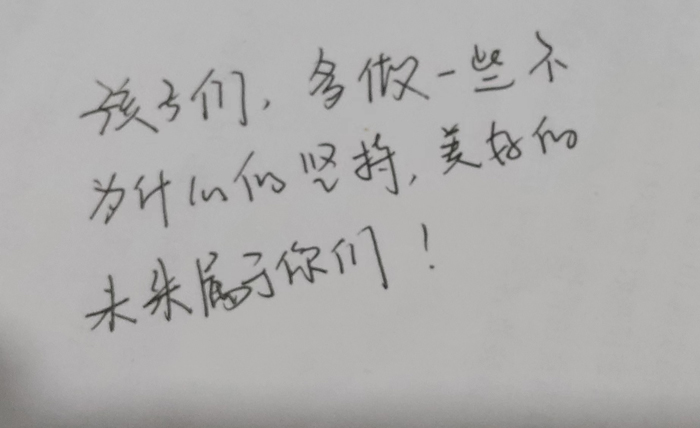 孩子们，多做一些不
为什么的坚持，美好的
未来属于你们！